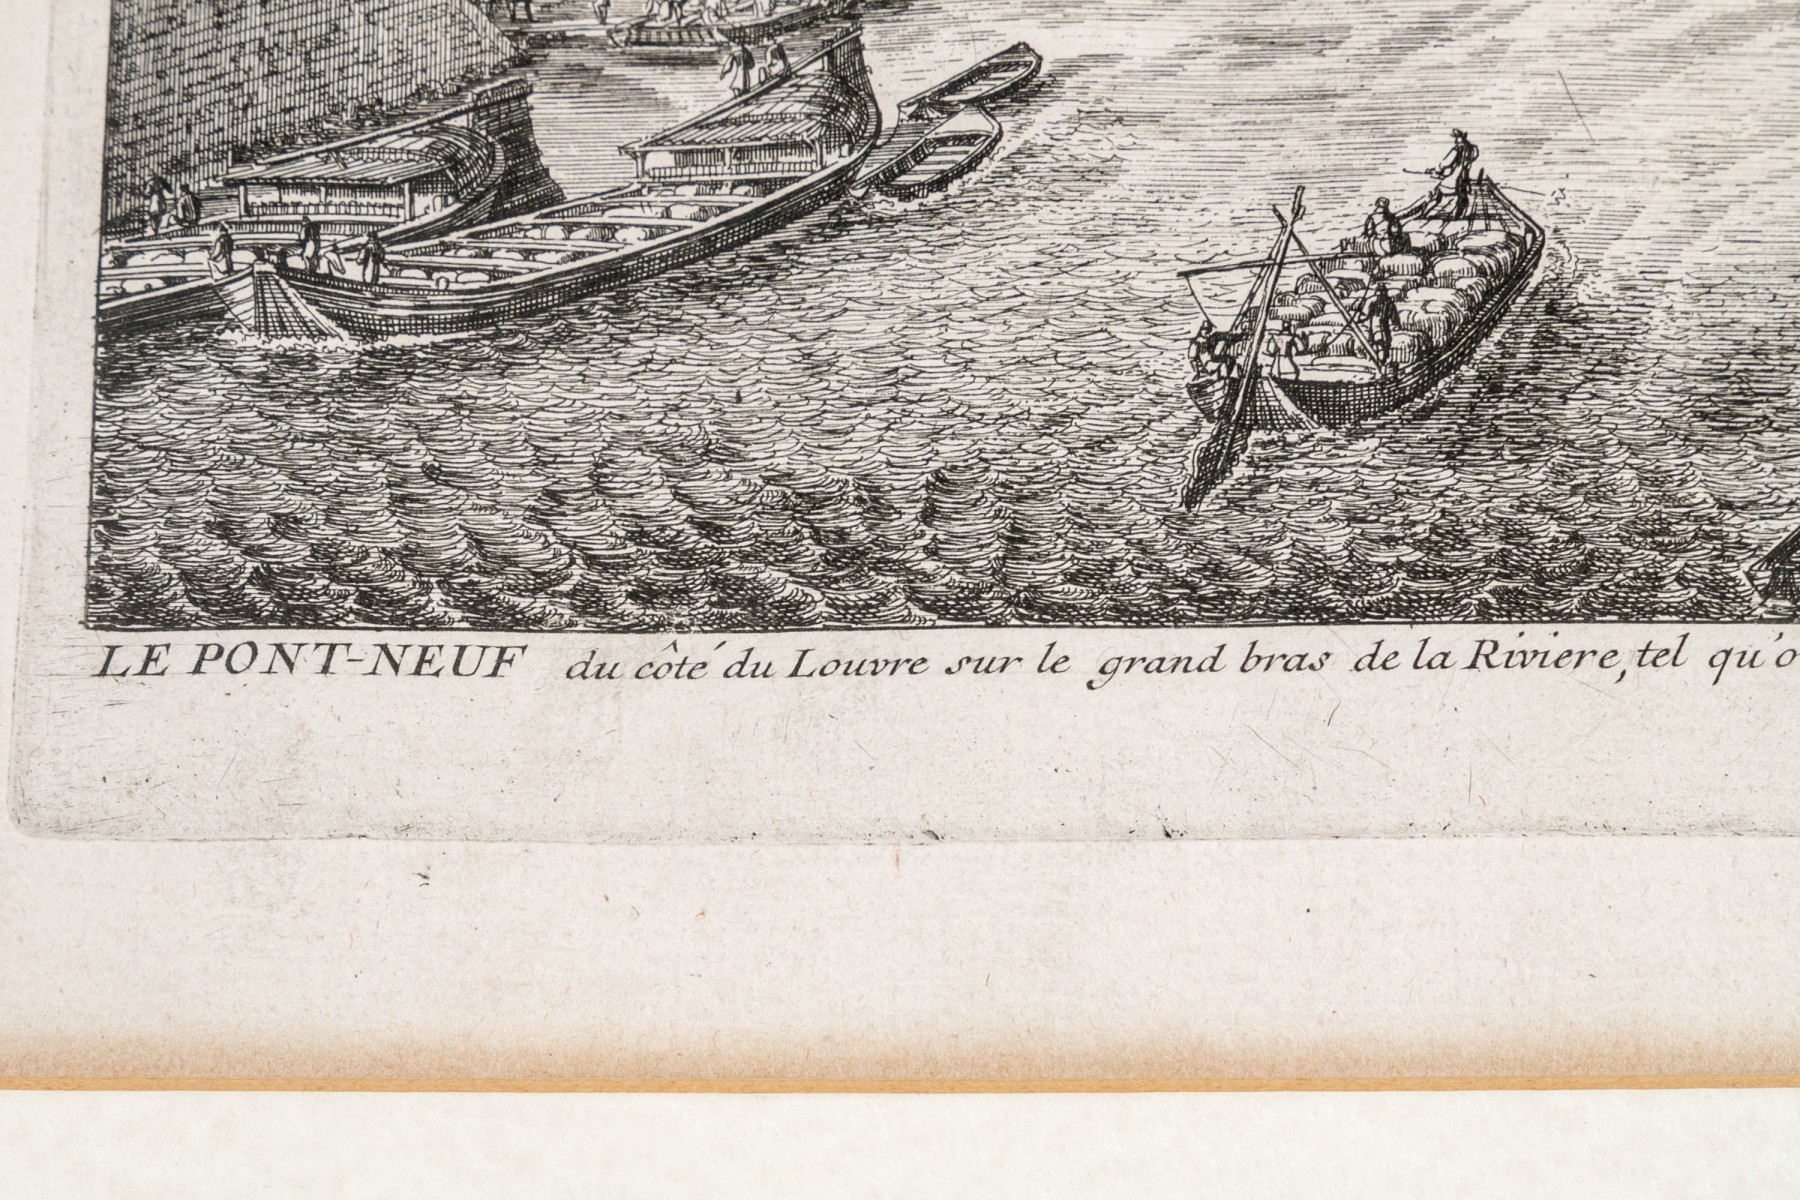 LE PONT-NEUF du côté du Louvre sur le grand bras de la Riviere, tel qu'o